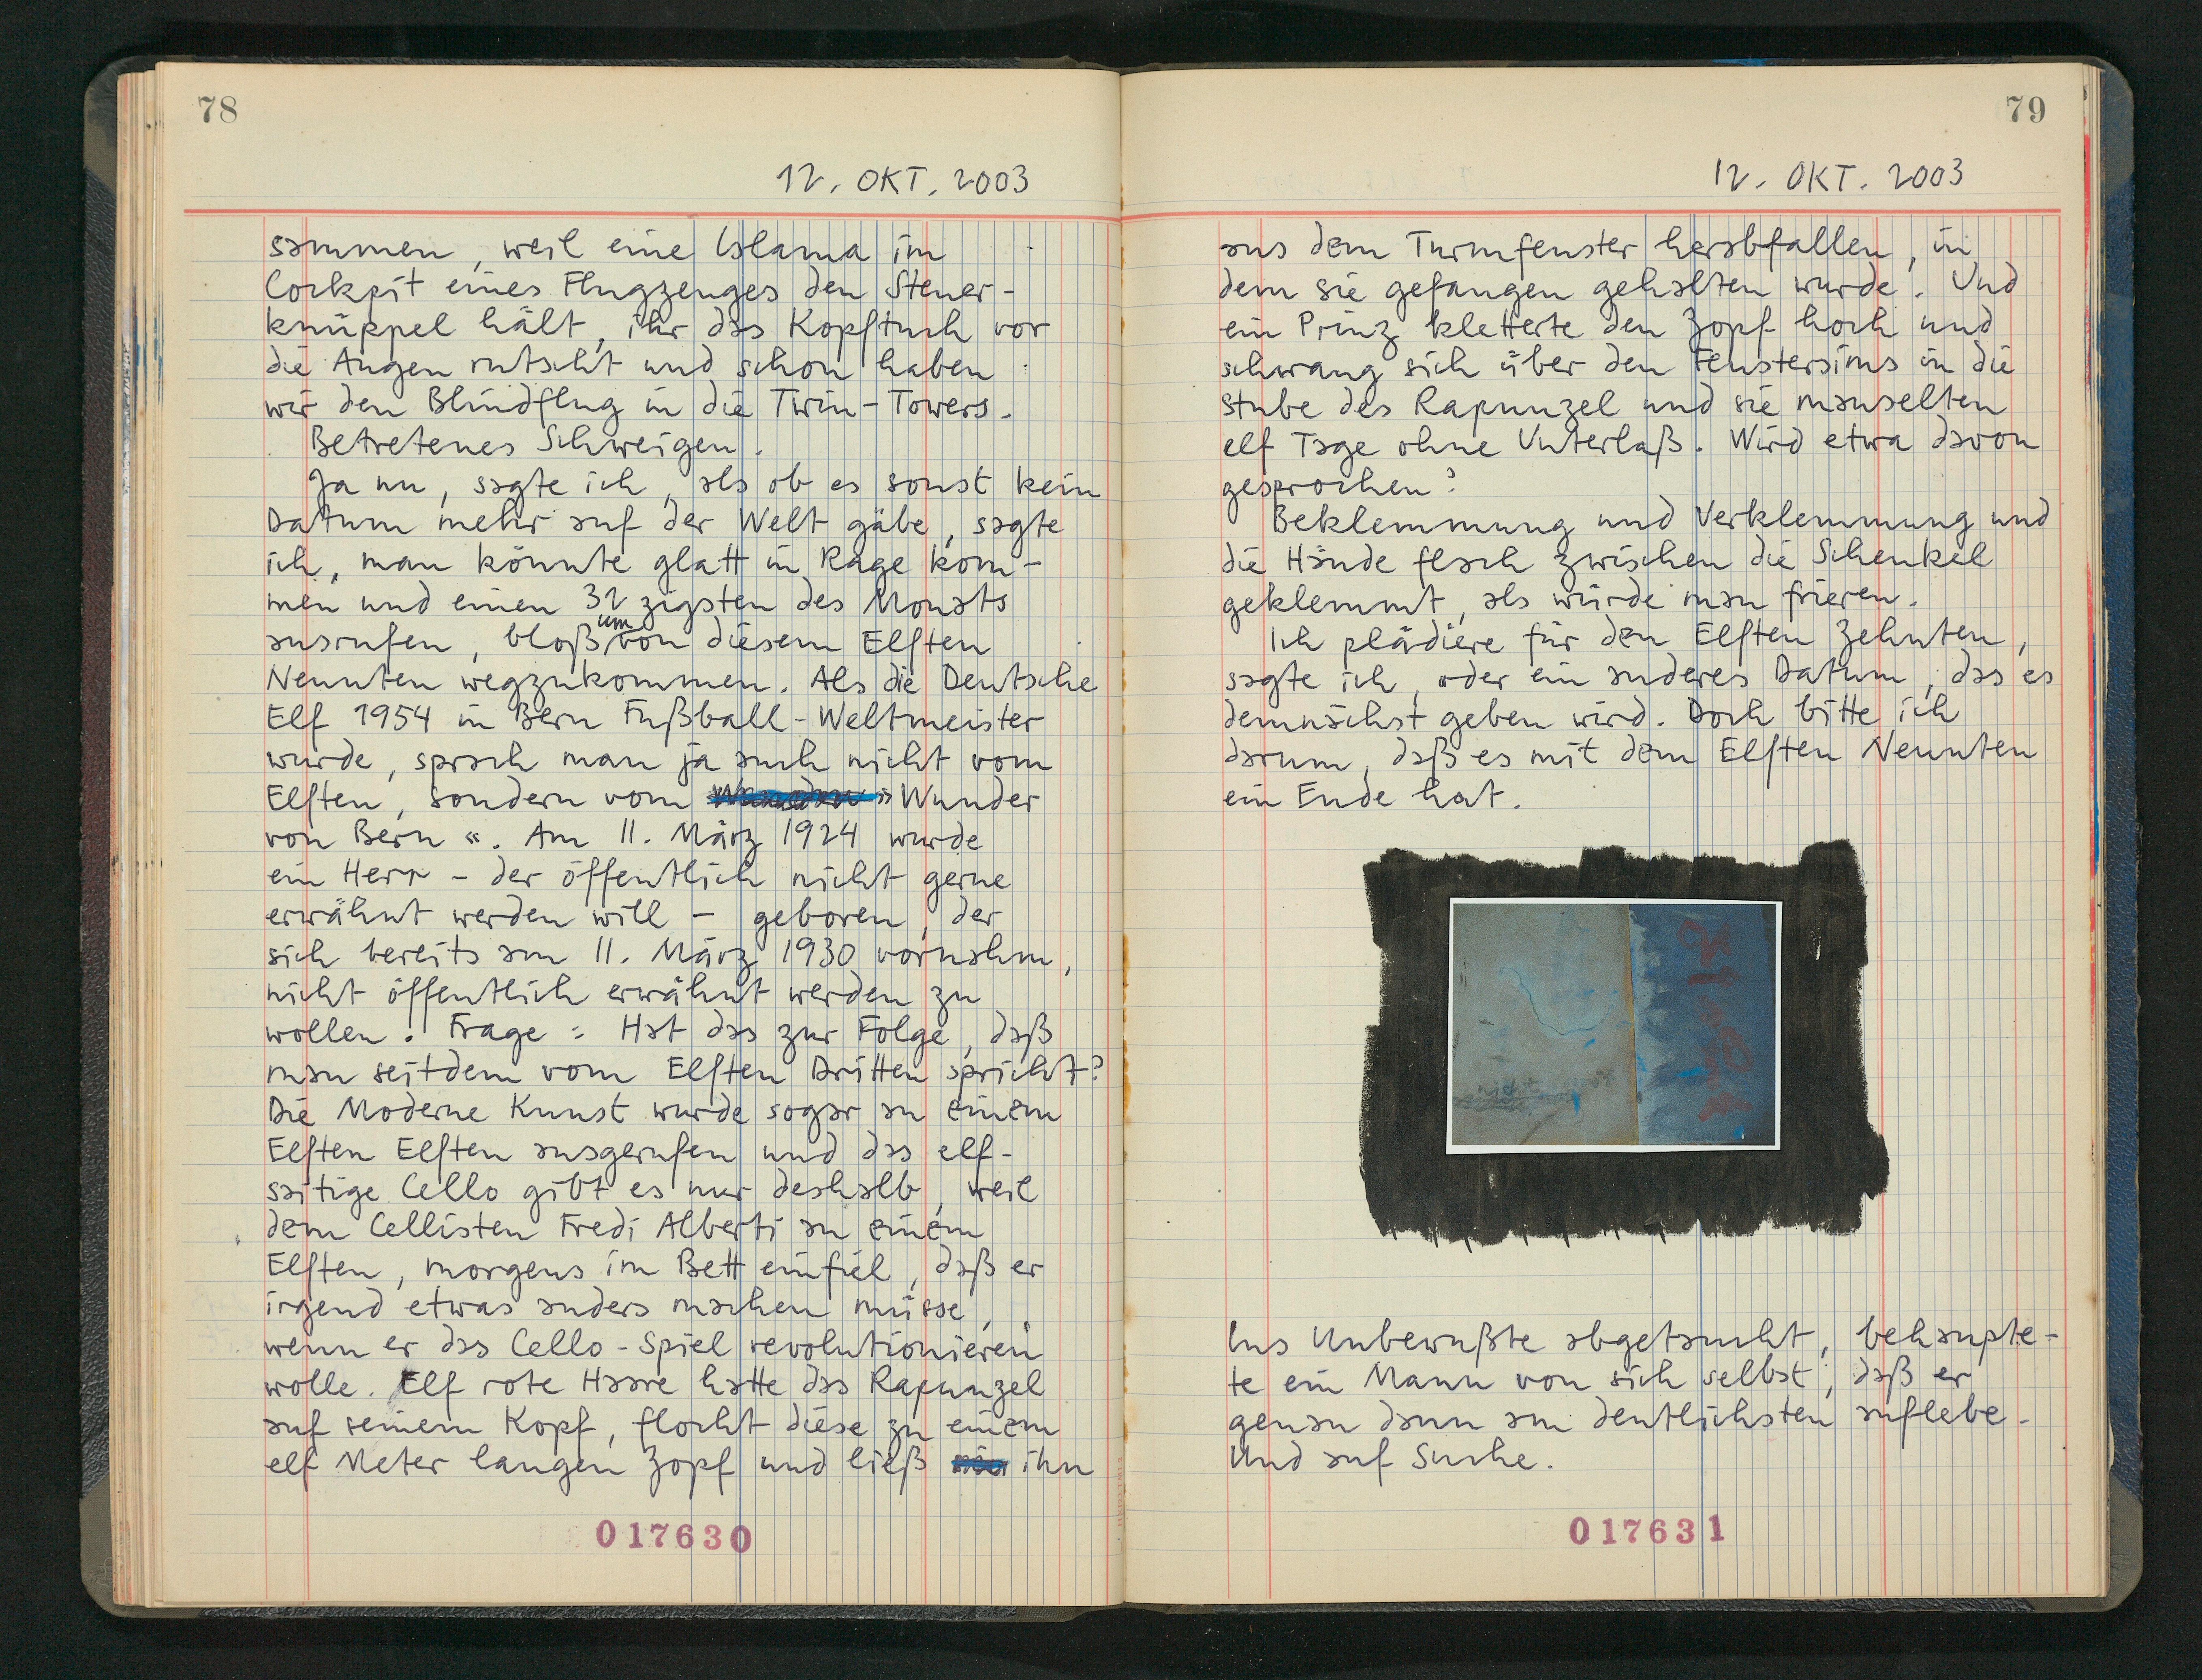 78
12. OKT. 2003
sammen, weil eine Islama im
Cockpit eines Flugzeuges den Steuer-
knüppel hält, ihr das Kopftuch vor
die Augen rutscht und schon haben
wir den Blindflug in die Twin-Towers.
Betretenes Schweigen.
Ja nu, sagte ich, als ob es sonst kein
Datum mehr auf der Welt gäbe, sagte
ich, man könnte glatt in Rage kom-
men und einen 32zigsten des Monats
ausrufen, bloß um von diesem Elften
Neunten wegzukommen. Als die Deutsche
Elf 1954 in Bern Fußball-Weltmeister
wurde, sprach man ja auch nicht vom
Elften, sondern vom »Wunder
von Bern«. Am 11. März 1924 wurde
ein Herr – der öffentlich nicht gerne
erwähnt werden will – geboren, der
sich bereits am 11. März 1930 vornahm,
nicht öffentlich erwähnt werden zu
wollen. Frage: Hat das zur Folge, daß
man seitdem vom Elften Dritten spricht?
Die Moderne Kunst wurde sogar an einem
Elften Elften ausgerufen und das elf-
saitige Cello gibt es nur deshalb, weil
dem Cellisten Fredi Alberti an einem
Elften, morgens im Bett einfiel, daß er
irgend etwas anders machen müsse,
wenn er das Cello-Spiel revolutionieren
wolle. Elf rote Haare hatte das Rapunzel
auf seinem Kopf, flocht diese zu einem
elf Meter langen Zopf und ließ ihn
017630
79
12. OKT. 2003
aus dem Turmfenster herabfallen, in
dem sie gefangen gehalten wurde. Und
ein Prinz kletterte den Zopf hoch und
schwang sich über den Fenstersims in die
Stube des Rapunzel und sie mauselten
elf Tage ohne Unterlaß. Wird etwa davon
gesprochen?
Beklemmung und Verklemmung und
die Hände flach zwischen die Schenkel
geklemmt, als würde man frieren.
Ich plädiere für den Elften Zehnten,
sagte ich, oder ein anderes Datum, das es
demnächst geben wird. Doch bitte ich
darum, daß es mit dem Elften Neunten
ein Ende hat.
nicht
Ins Unbewußte abgetaucht, behaupte-
te ein Mann von sich selbst, daß er
genau dann am deutlichsten auflebe.
Und auf Suche.
017631